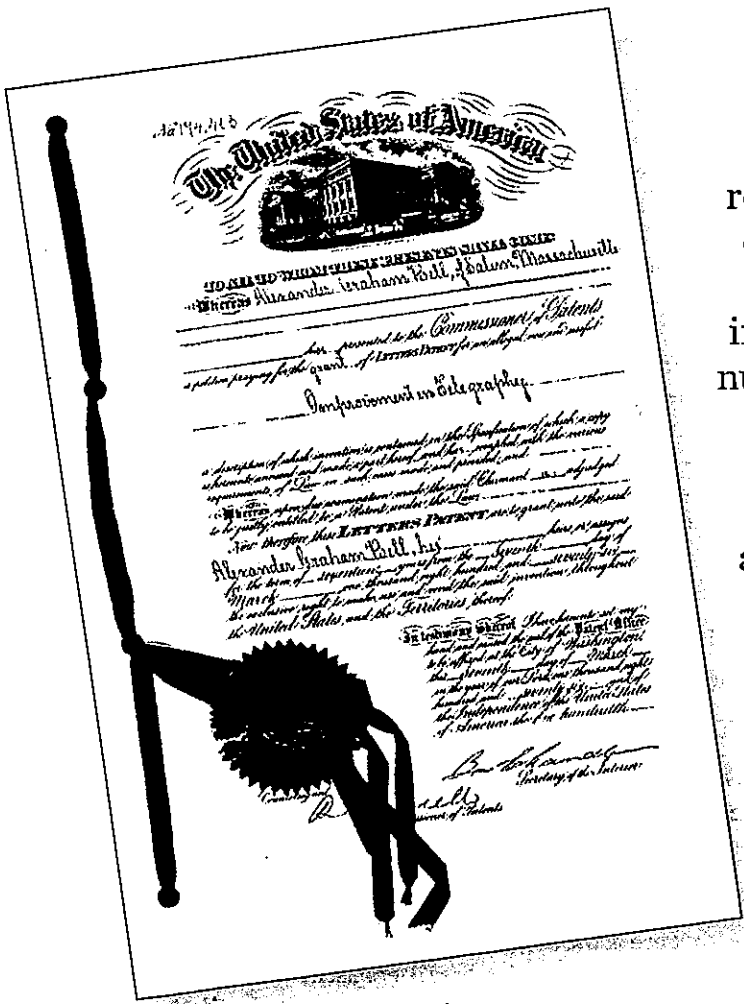 The United States of America
TO ALL TO WHOM THESE PRESENTS SHALL COME:
Whereas Alexander Graham Bell, of Salem, Massachusetts
has presented to the Commissioner of Patents
a petition praying for the grant of LETTERS PATENT for an alleged new and useful
Improvement in Telegraphy
a description of which invention is contained in the Specification of which a copy
is hereunto annexed and made a part hereof and has complied with the various
requirements of Law in such cases made and provided, and
Whereas upon due examination made the said Claimant is adjudged
to be justly entitled to a Patent under the Law
Now therefore these LETTERS PATENT are to grant unto the said
Alexander Graham Bell, his heirs or assigns
for the term of seventeen years from the seventh day of
March one thousand eight hundred and seventy six
the exclusive right to make use and vend the said invention throughout
the United States and the Territories thereof
In testimony whereof I have hereunto set my
hand and caused the seal of the Patent Office
to be affixed at the City of Washington
this seventh day of March
in the year of our Lord one thousand eight
hundred and seventy six and of
the Independence of the United States
of America the one hundredth
Secretary of the Interior
Countersigned
of Patents